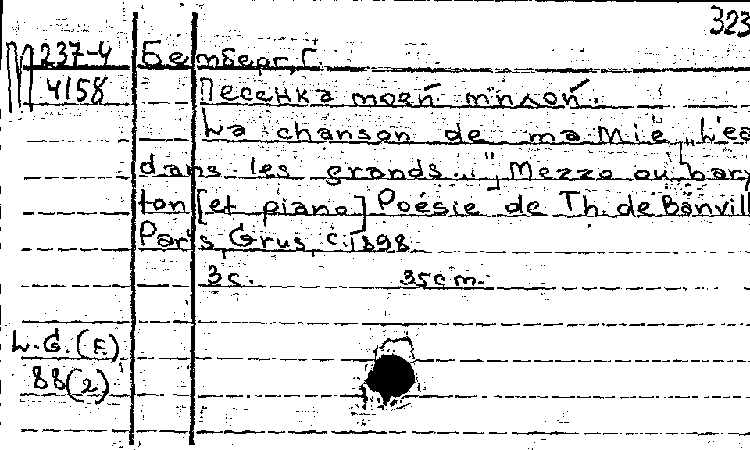 323
М 237-4 Бемберг, Г.
4158 Песенка моей милой.
La chanson de ma Mie „L'ea
dans les grands..." Mezzo ou bary
ton [et piano] Poésie de Th. de Banvill
Paris, Grus, c. 1898.
3 с. 35 cm.
L.G.(F)
88(2)